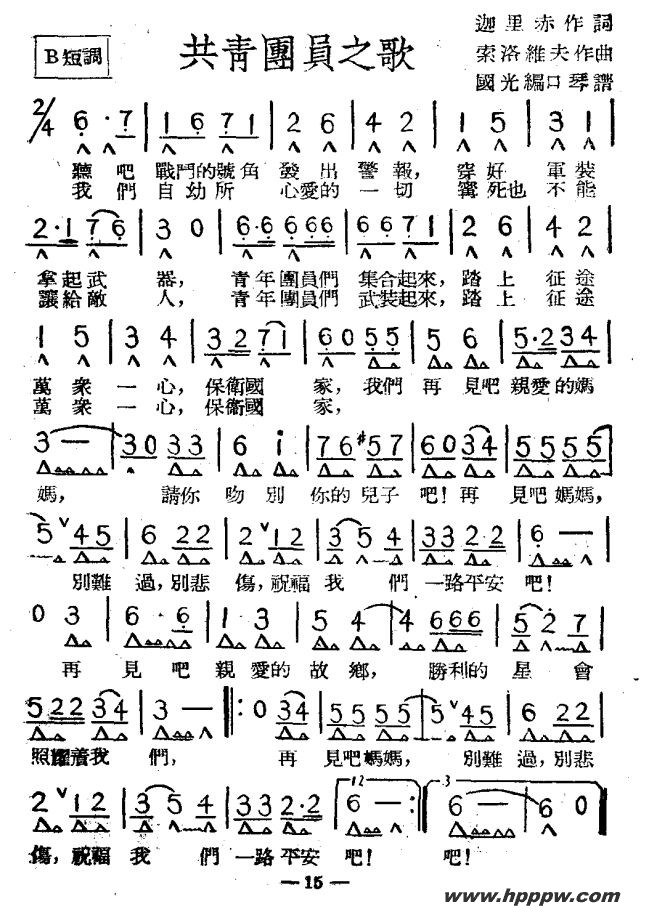 B短調
共青團員之歌
迦里赤作詞
索洛維夫作曲
國光編口琴譜
2/4 6·7 | 1 6 7 1 | 2 6 | 4 2 | 1 5 | 3 1 |
聽吧 戰鬥的號角 發出 警報， 穿好 軍裝
我們 自幼所 心愛的 一切 寗死也 不能
2·1 7 6 | 3 0 | 6·6 6 6 6 | 6 6 7 1 | 2 6 | 4 2 |
拿起武 器， 青年團員們 集合起來， 踏上 征途
讓給敵 人， 青年團員們 武裝起來， 踏上 征途
1 5 | 3 4 | 3 2 7 1 | 6 0 5 5 | 5 6 | 5·2 3 4 |
萬衆 一心， 保衛國 家， 我們 再見吧 親愛的媽
萬衆 一心， 保衛國 家，
3 — | 3 0 3 3 | 6 i | 7 6 #5 7 | 6 0 3 4 | 5 5 5 5 |
媽， 請你 吻別 你的兒子 吧！再 見吧媽媽，
5 ∨ 4 5 | 6 2 2 | 2 ∨ 1 2 | 3 5 4 | 3 3 2·2 | 6 — |
別難 過，別悲 傷，祝福 我 們 一路平安 吧！
0 3 | 6·6 | 1·3 | 5 4 | 4 6 6 6 | 5 2 7 |
再 見吧 親愛的故 鄉， 勝利的 星會
5 2 2 3 4 | 3 — :‖: 0 3 4 | 5 5 5 5 | 5 ∨ 4 5 | 6 2 2 |
照耀着我 們， 再 見吧媽媽， 別難 過，別悲
2 ∨ 1 2 | 3 5 4 | 3 3 2·2 | 12 6 — :‖ 3 6 — | 6 0 ‖
傷，祝福 我 們 一路平安 吧！ 吧！
— 15 —
www.hpppw.com